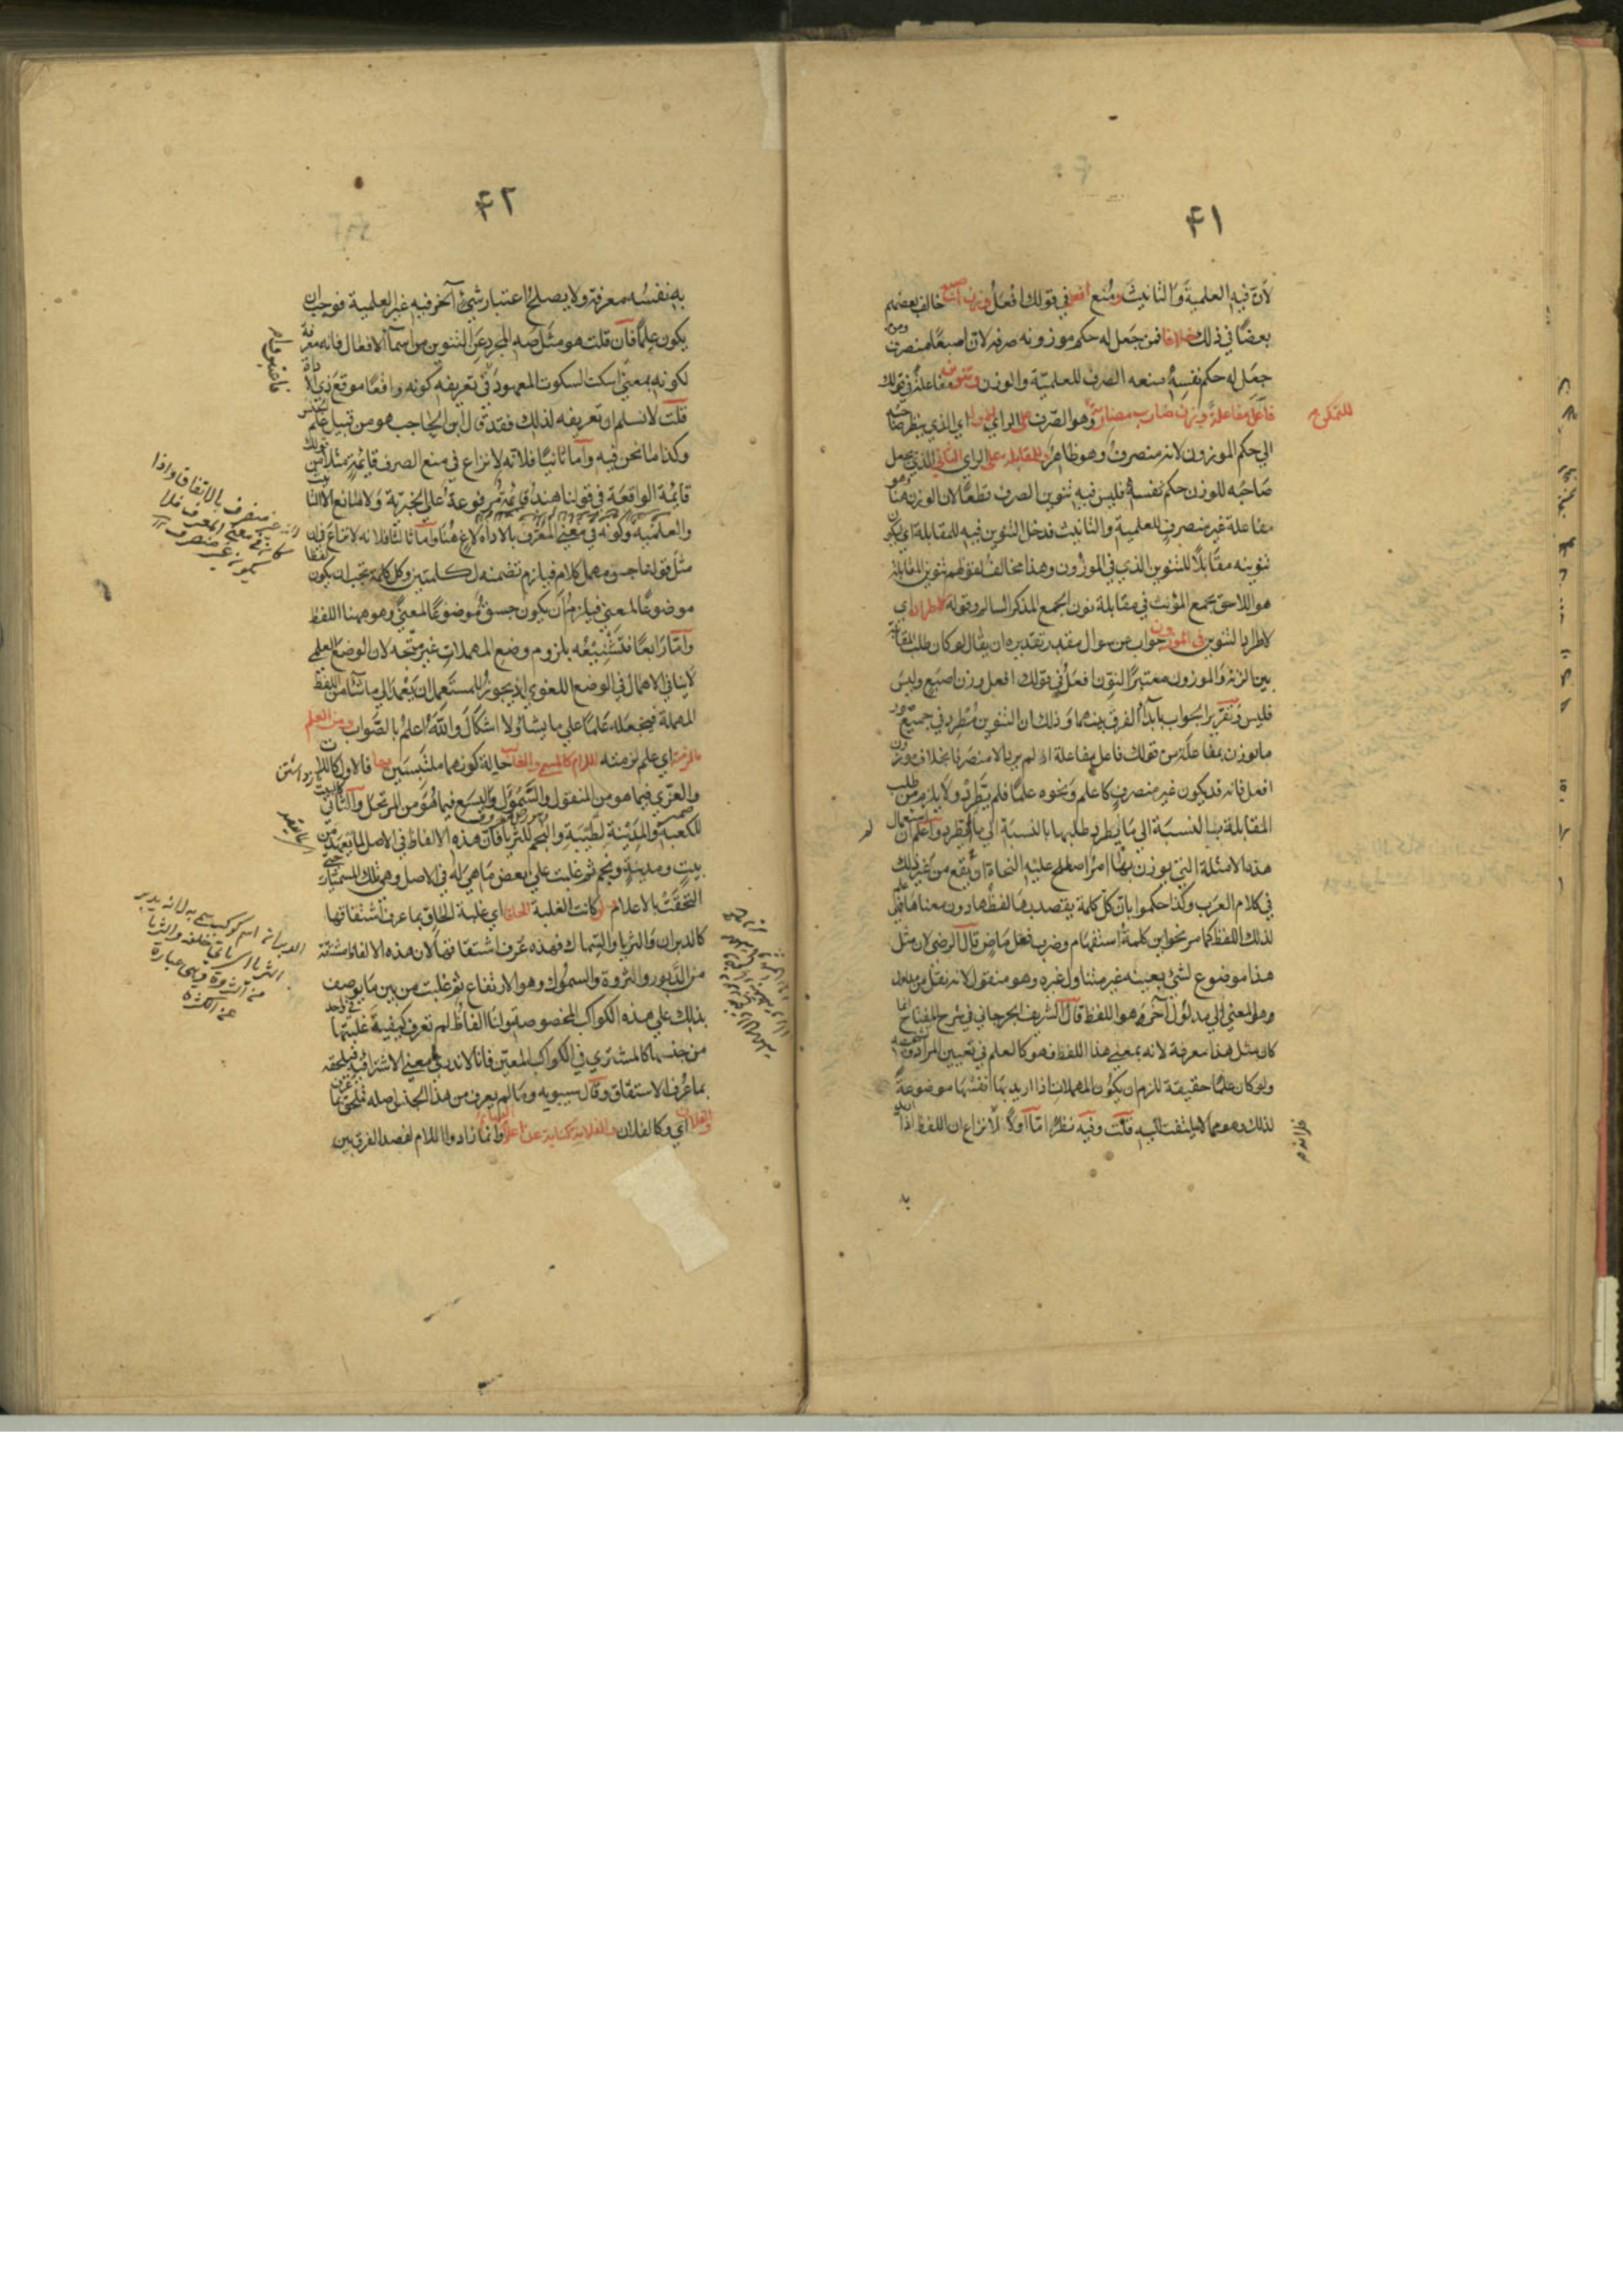 ٤١
لأن فيه العلمية والتانيث ومنع افعل في قولك افعل وزن اصبع خالف بعضهم
بعضا في ذلك خلافا فمن جعل له حكم موزونه صرفه لان اصبعا منصرف ومن
جعل له حكم نفسه منعه الصرف للعلمية والوزن وتنوين مفاعلة في قولك
فاعل مفاعلة وزن ضارب مضاربة وهو الصرف على الراي الاول اي الذي ينظر صاحبه
للتمكن
الي حكم الموزون لانه منصرف وهو ظاهر وللمقابلة على الراي الثاني الذي يجعل
صاحبه للوزن حكم نفسه فليس فيه تنوين الصرف قطعا لان الوزن هنا وهو
مفاعلة غير منصرف للعلمية والتانيث فدخل التنوين فيه للمقابلة اي يكون
تنوينه مقابلا للتنوين الذي في الموزون وهذا مخالف لقولهم تنوين المقابلة
هو اللاحق بجمع المؤنث في مقابلة نون الجمع المذكر السالم وقوله لاطراد اي
لاطراد التنوين في الموزون جواب عن سوال مقدر تقديره ان يقال لو كان طلب المقابلة
بين الزنة والموزون معتبرا لنون افعل في قولك افعل وزن اصبع وليس
فليس وتقرير الجواب بابداء الفرق بينهما وذلك ان التنوين مطرد في جميع صور
ما توزن بمفاعلة من قولك فاعل مفاعلة اذ لم يرد الا منصرفا بخلاف وزن
افعل فانه قد يكون غير منصرف كاعلم ونحوه علما فلم يطرد ولا يلزم من طلب
المقابلة بالنسبة الى ما يطرد طلبها بالنسبة الي ما لم يطرد واعلم ان استعمال
هذه الامثلة التي يوزن بها امر اصطلح عليه النحاة ان يقع من غير ذلك
في كلام العرب وكذا حكموا بان كل كلمة يقصد بها لفظها دون معناها علم
لذلك اللفظ كما مر نحو اين كلمة استفهام وضرب فعل ماض قال الرضي لان مثل
هذا موضوع لشئ بعينه غير متناول غيره وهو منقول لانه نقل من مدلول
وهو المعني الي مدلول آخر وهو اللفظ قال الشريف الجرجاني في شرح المفتاح انما
كان مثل هذا معرفة لانه بمعني هذا اللفظ فهو كالعلم في تعيين المراد
ولو كان علما حقيقة للزم ان يكون المهملات اذا اريد بها انفسها موضوعة
لذلك وهو مما لا يلتفت اليه قلت وفيه نظر اما اولا لا نزاع ان اللفظ اذا اريد
٤٢
به نفسه معرفة ولا يصلح اعتبار شئ آخر فيه غير العلمية فوجب ان
يكون علما فان قلت هو مثل صه المجرد عن التنوين من اسماء الافعال فانه معرفة
لكونه بمعني اسكت السكوت المعهود في تعريفه كونه واقعا موقع ذي الاداة
قلت لا نسلم ان تعريفه لذلك فقد قال ابن الحاجب هو من قبيل علم الجنس
وكذا ما نحن فيه واما ثانيا فلانه لا نزاع في منع الصرف قايمة مثلا من قولك
قايمة الواقعة في قولنا هند قايمة مرفوعة على الخبرية ولا مانع الا التانيث
والعلمية وكونه في معني المعرف بالاداة لاغ هنا واما ثالثا فلانه لا نزاع في ان
مثل قولنا جسق مهمل كلام فيلزم تضمنه لكلمتين وكل كلمة يجب ان يكون لفظا
موضوعا لمعني فيلزم ان يكون جسق موضوعا لمعني وهو هنا اللفظ
واما رابعا فتشنيعه بلزوم وضع المهملات غير متجه لان الوضع العلمي
لا ينافي الاهمال في الوضع اللغوي اذ يجوز للمستعمل ان يعمد الي ما شاء من اللفظ
المهملة فيجعله علما علي ما يشاء ولا اشكال والله اعلم بالصواب ومن العلم
ما لزمته اي علم لزمته اللام كالمسمي والغالب حالة كونهما ملتبسين بها فالاول كاللات
والعزي فيما هو من المنقول والسموأل واليسع فيما هو من المرتجل والثاني كالبيت
للكعبة والمدينة لطيبة والنجم للثريا فان هذه الالفاظ في الاصل لما يعهد من
بيت ومدينة ونجم ثم غلبت علي بعض ما هي له في الاصل وهي تلك المسميات حتى
التحقت بالاعلام ولو كانت الغلبة للحاق اي غلبة الحاق بما عرف اشتقاقها
كالدبران والثريا والسماك فهذه عرف اشتقاقها لان هذه الالفاظ مشتقة
من الدبور والثروة والسموك وهو الارتفاع ثم غلبت من بين ما يوصف
بذلك علي هذه الكواكب المخصوصة واما الفاظ لم تعرف كيفية غلبتها
من جنسها كالمشتري في الكواكب المعين فانا لا ندري ما معني الاشتراء فيه فيلحقه
بما عرف الاستقاق وقال سيبويه وما لم يعرف من هذا الجنس اصله فملحق بما عرف
والفلان اي وكالفلان والفلانة كناية عن اعلام البهايم وانما زادوا اللام لقصد الفرق بين
غير منصرف بالاتفاق واذا
الدبران اسم كوكب سمي به لانه يدبر
الثريا اي ياتي خلفه والثريا
من الثروة وهي عبارة
عن الكثرة